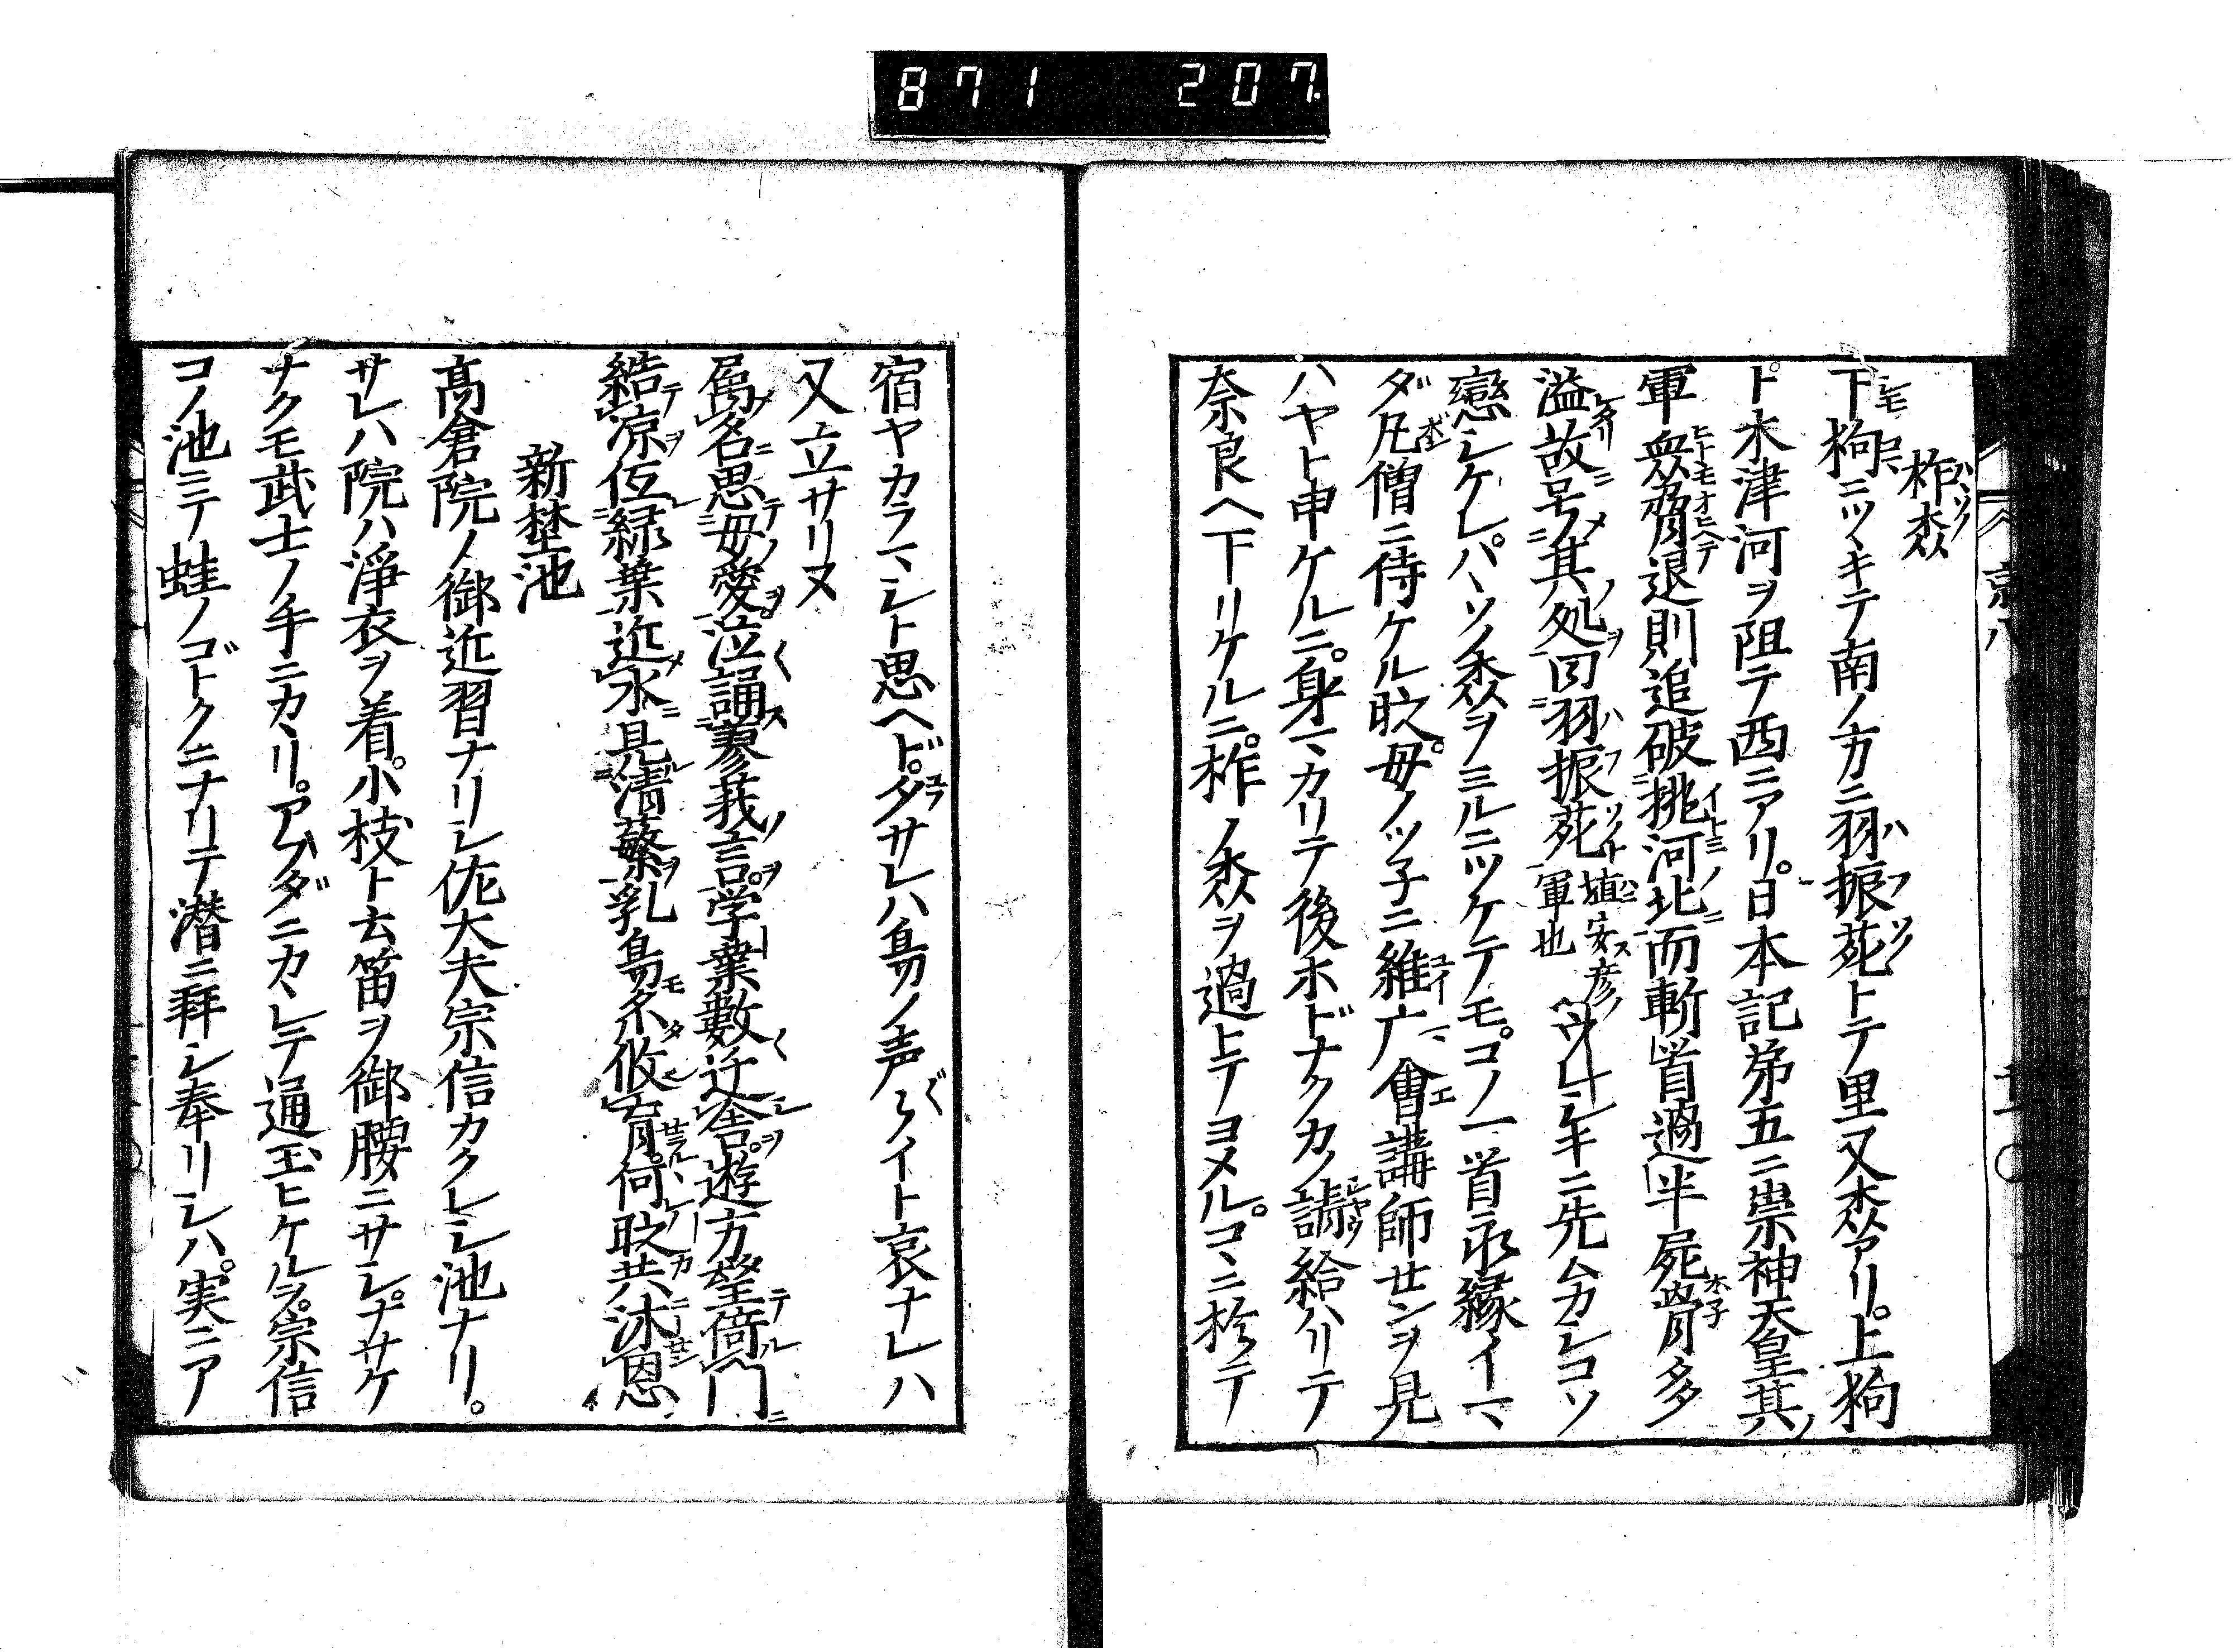 871 207
柞森
下狗ニツヽキテ南ノ方ニ羽振苑トテ里又森アリ上狗
ト木津河ヲ阻テ西ニアリ日本記第五ニ崇神天皇其
軍衆脅退則追破挑河北而斬首過半屍骨多
溢故号其処曰羽振苑埴安彦ノ軍也ウレシキニ先ムカシコソ
戀シケレハヽソノ森ヲミルニツケテモコノ一首永縁イマ
ダ凡僧ニ侍ケル时母ノツ子ニ維广會講師センヲ見
ハヤト申ケルニ身マカリテ後ホドナクカノ請給ハリテ
奈良ヘ下リケルニ柞ノ森ヲ過トテノヨメルコヽニ於テ
宿ヤカラマシト思ヘドタサレハ鳥ノ声〱イト哀ナレハ
又立サリヌ
属名思母愛泣誦蓼莪言学業數迂舎遊方望倚門
結凉低緑葉近水見清蘩乳鳥糸攸育何时共沐恩
新埜池
髙倉院ノ御近習ナリシ佐大夫宗信カクレシ池ナリ
サレハ院ハ淨衣ヲ着小枝ト云笛ヲ御腰ニサシナサケ
ナクモ武士ノ手ニカヽリアムダニカヽレテ通玉ヒケルヲ宗信
コノ池ニテ蛙ノゴトクニナリテ潜ニ拜シ奉リシハ実ニア